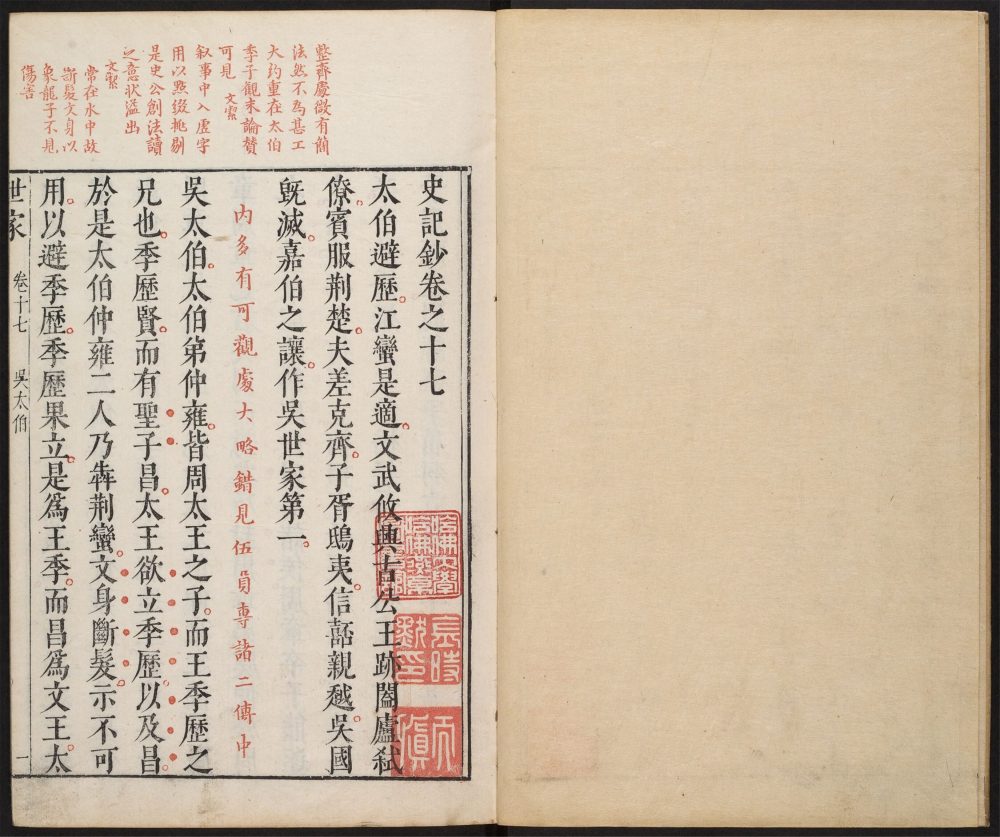 整齊處微有簡
法然不為甚工
大約重在太伯
季子觀末論賛
可見
文㓗
叙事中入虛字
用以㸃綴挑剔
是史公創法讀
之意状溢出
文㓗
常在水中故
斷髪文身以
象龍子不見
傷害
史記鈔卷之十七
太伯避歷江蠻是適文武攸興古公王跡闔廬弑
僚賓服荆楚夫差克齊子胥鴟夷信嚭親越吳國
旣滅嘉伯之讓作吳世家第一
内多有可觀處大略錯見伍員專諸二傳中
吳太伯太伯弟仲雍皆周太王之子而王季歷之
兄也季歷賢而有聖子昌太王欲立季歷以及昌
於是太伯仲雍二人乃犇荆蠻文身斷髮示不可
用以避季歷季歷果立是爲王季而昌爲文王太
世家
卷十七
吳太伯
一